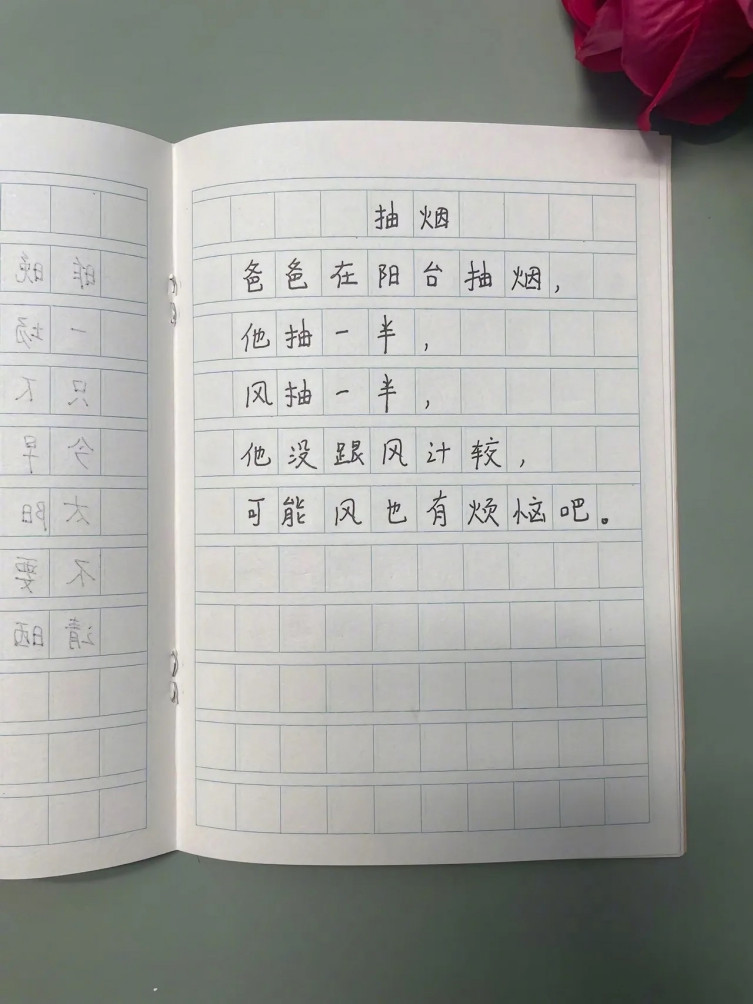 抽烟
爸爸在阳台抽烟，
他抽一半，
风抽一半，
他没跟风计较，
可能风也有烦恼吧。